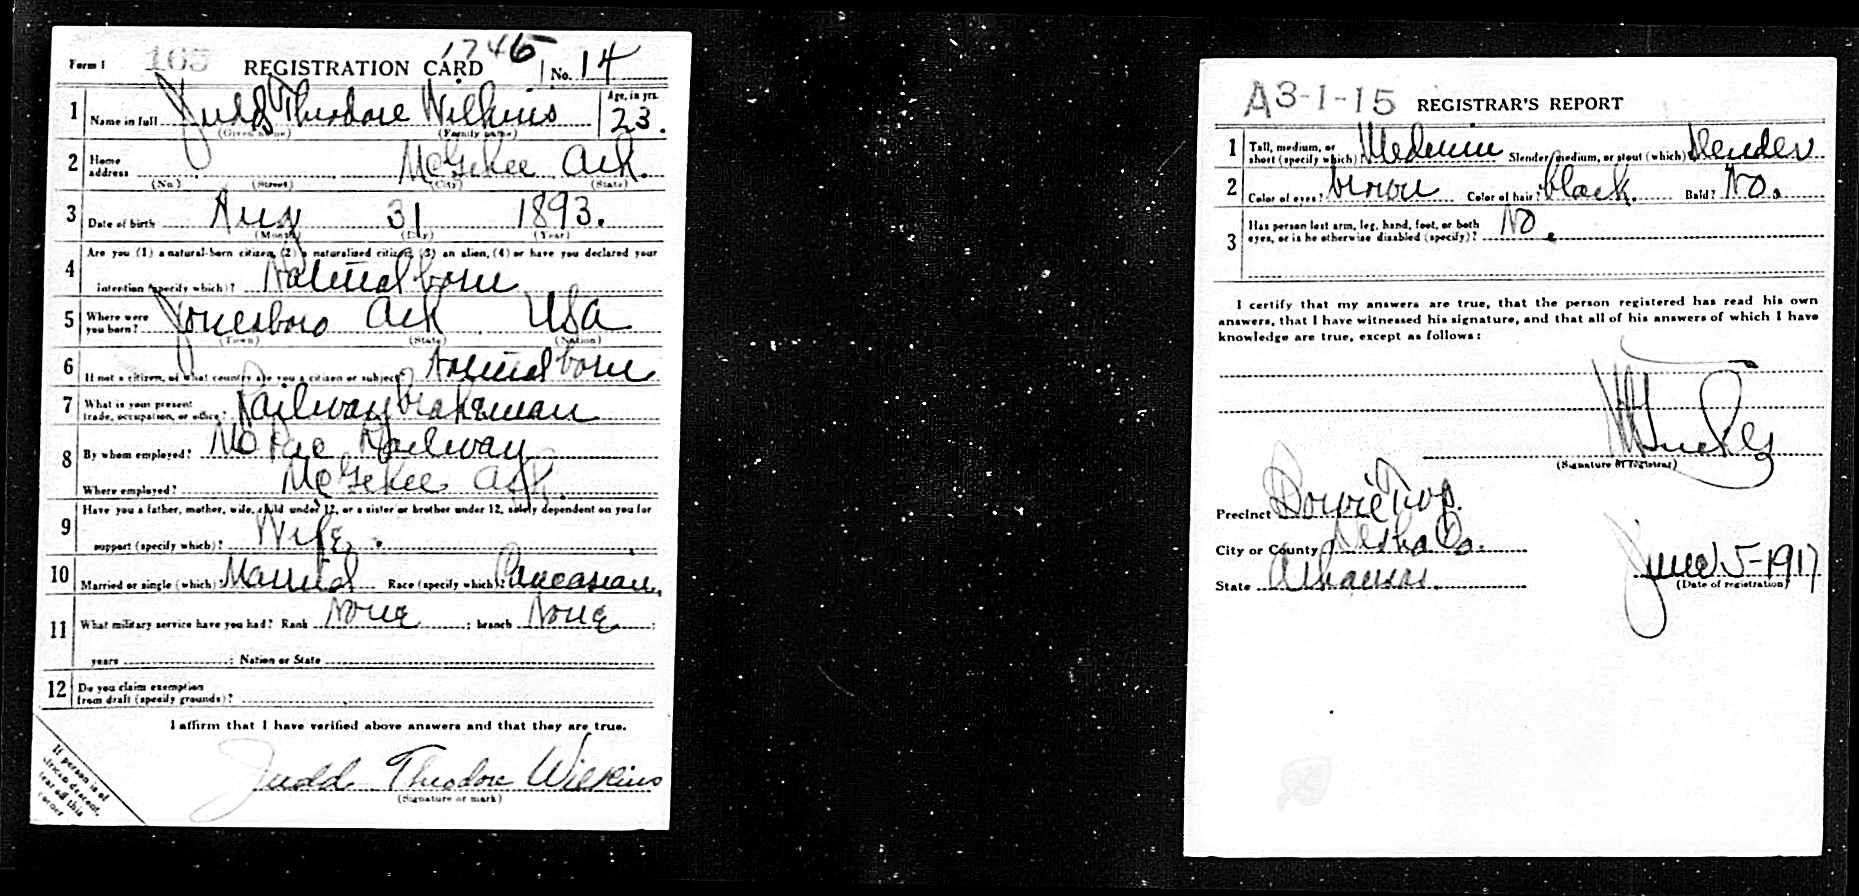 1746
Form 1 165 REGISTRATION CARD No. 14
1 Name in full Judd Theodore Wilkins Age, in yrs. 23.
(Given name) (Family name)
2 Home address McGehee Ark.
(No.) (Street) (City) (State)
3 Date of birth Aug 31 1893.
(Month) (Day) (Year)
4 Are you (1) a natural-born citizen, (2) a naturalized citizen, (3) an alien, (4) or have you declared your
intention (specify which)? Natural born
5 Where were you born? Jonesboro Ark USA
(Town) (State) (Nation)
6 If not a citizen, of what country are you a citizen or subject? Natural born
7 What is your present trade, occupation, or office? Railway brakeman
8 By whom employed? Mo Pac Railway
Where employed? McGehee Ark.
9 Have you a father, mother, wife, child under 12, or a sister or brother under 12, solely dependent on you for
support (specify which)? Wife.
10 Married or single (which)? Married Race (specify which)? Caucasian
11 What military service have you had? Rank None ; branch None ;
years ; Nation or State
12 Do you claim exemption
from draft (specify grounds)?
I affirm that I have verified above answers and that they are true.
Judd Theodore Wilkins
(Signature or mark)
If person is of
African descent,
tear off this
corner
A3-1-15 REGISTRAR'S REPORT
1 Tall, medium, or short (specify which)? Medium Slender, medium, or stout (which)? Slender
2 Color of eyes? brown Color of hair? black. Bald? No.
3 Has person lost arm, leg, hand, foot, or both
eyes, or is he otherwise disabled (specify)? No.
I certify that my answers are true, that the person registered has read his own
answers, that I have witnessed his signature, and that all of his answers of which I have
knowledge are true, except as follows:
(Signature of registrar)
Precinct Bowie Twp.
City or County Desha Co.
State Arkansas.
June 5-1917
(Date of registration)